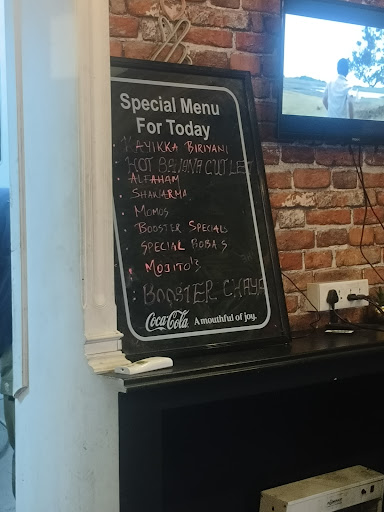 Special Menu
For Today
KAYIKKA BIRIYANI
HOT BANANA CUTLET
• ALFAHAM
• SHAWARMA
• MOMOS
• BOOSTER SPECIAL
SPECIAL BOBA'S
• MOJITO'S
• BOOSTER CHAYA
Coca-Cola A mouthful of joy.